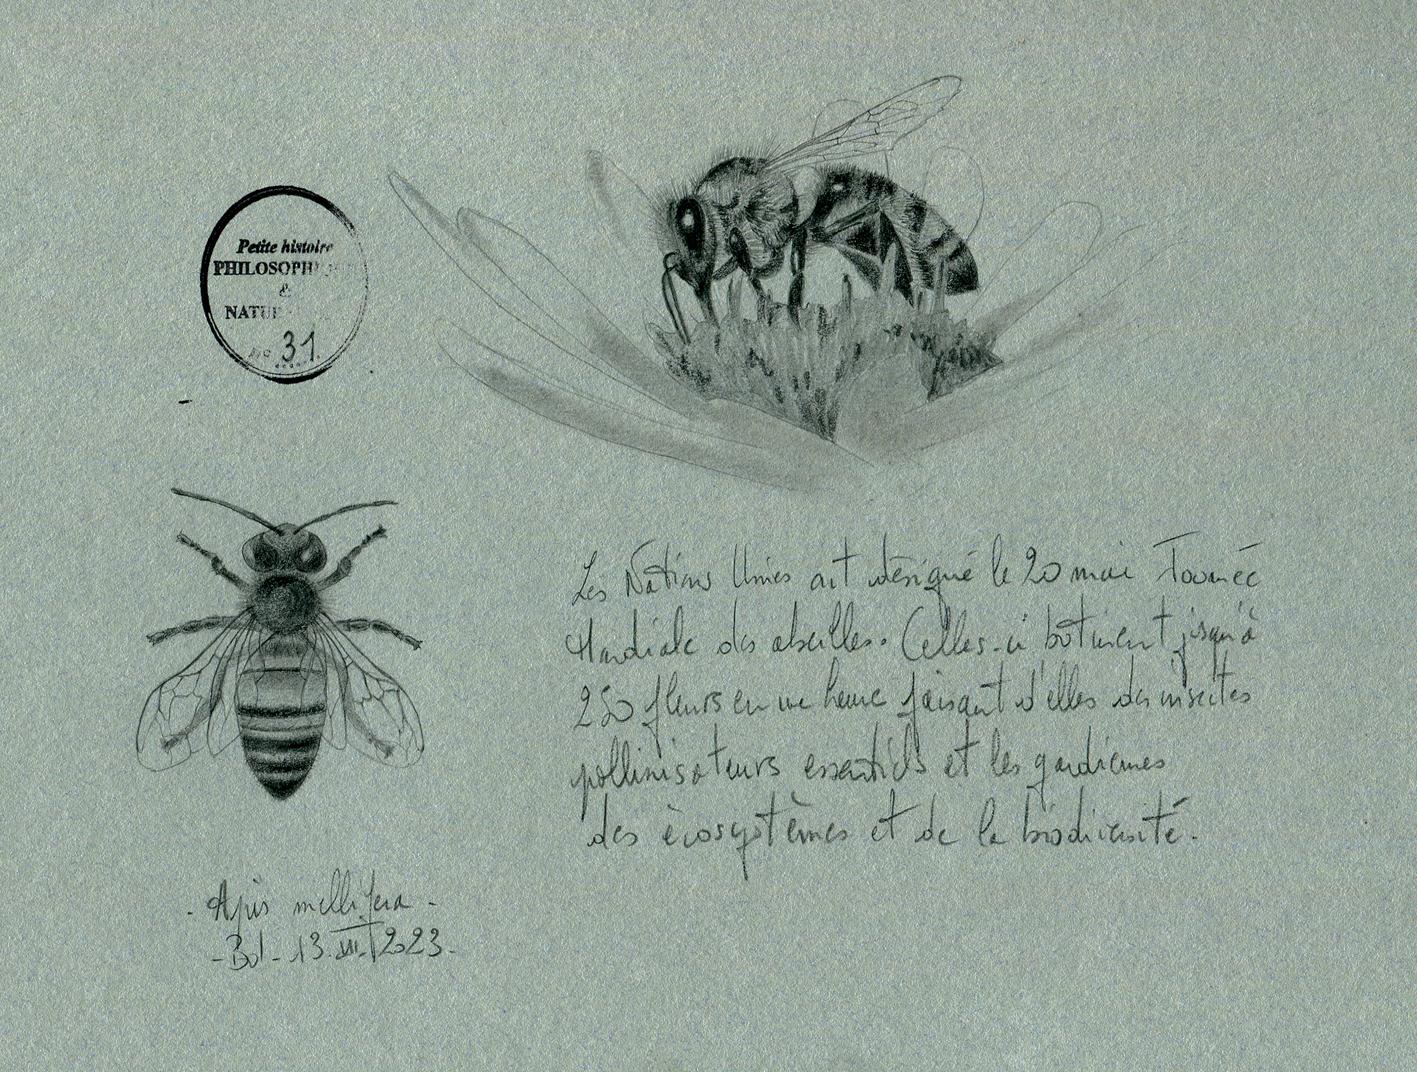 Petite histoire
PHILOSOPHIQUE
&
NATUR
No 31.
Les Nations Unies ont désigné le 20 mai Journée
Mondiale des abeilles. Celles-ci butinent jusqu'à
250 fleurs en une heure faisant d'elles des insectes
pollinisateurs essentiels et les gardiennes
des écosystèmes et de la biodiversité.
- Apis mellifera -
13. VII. 2023.